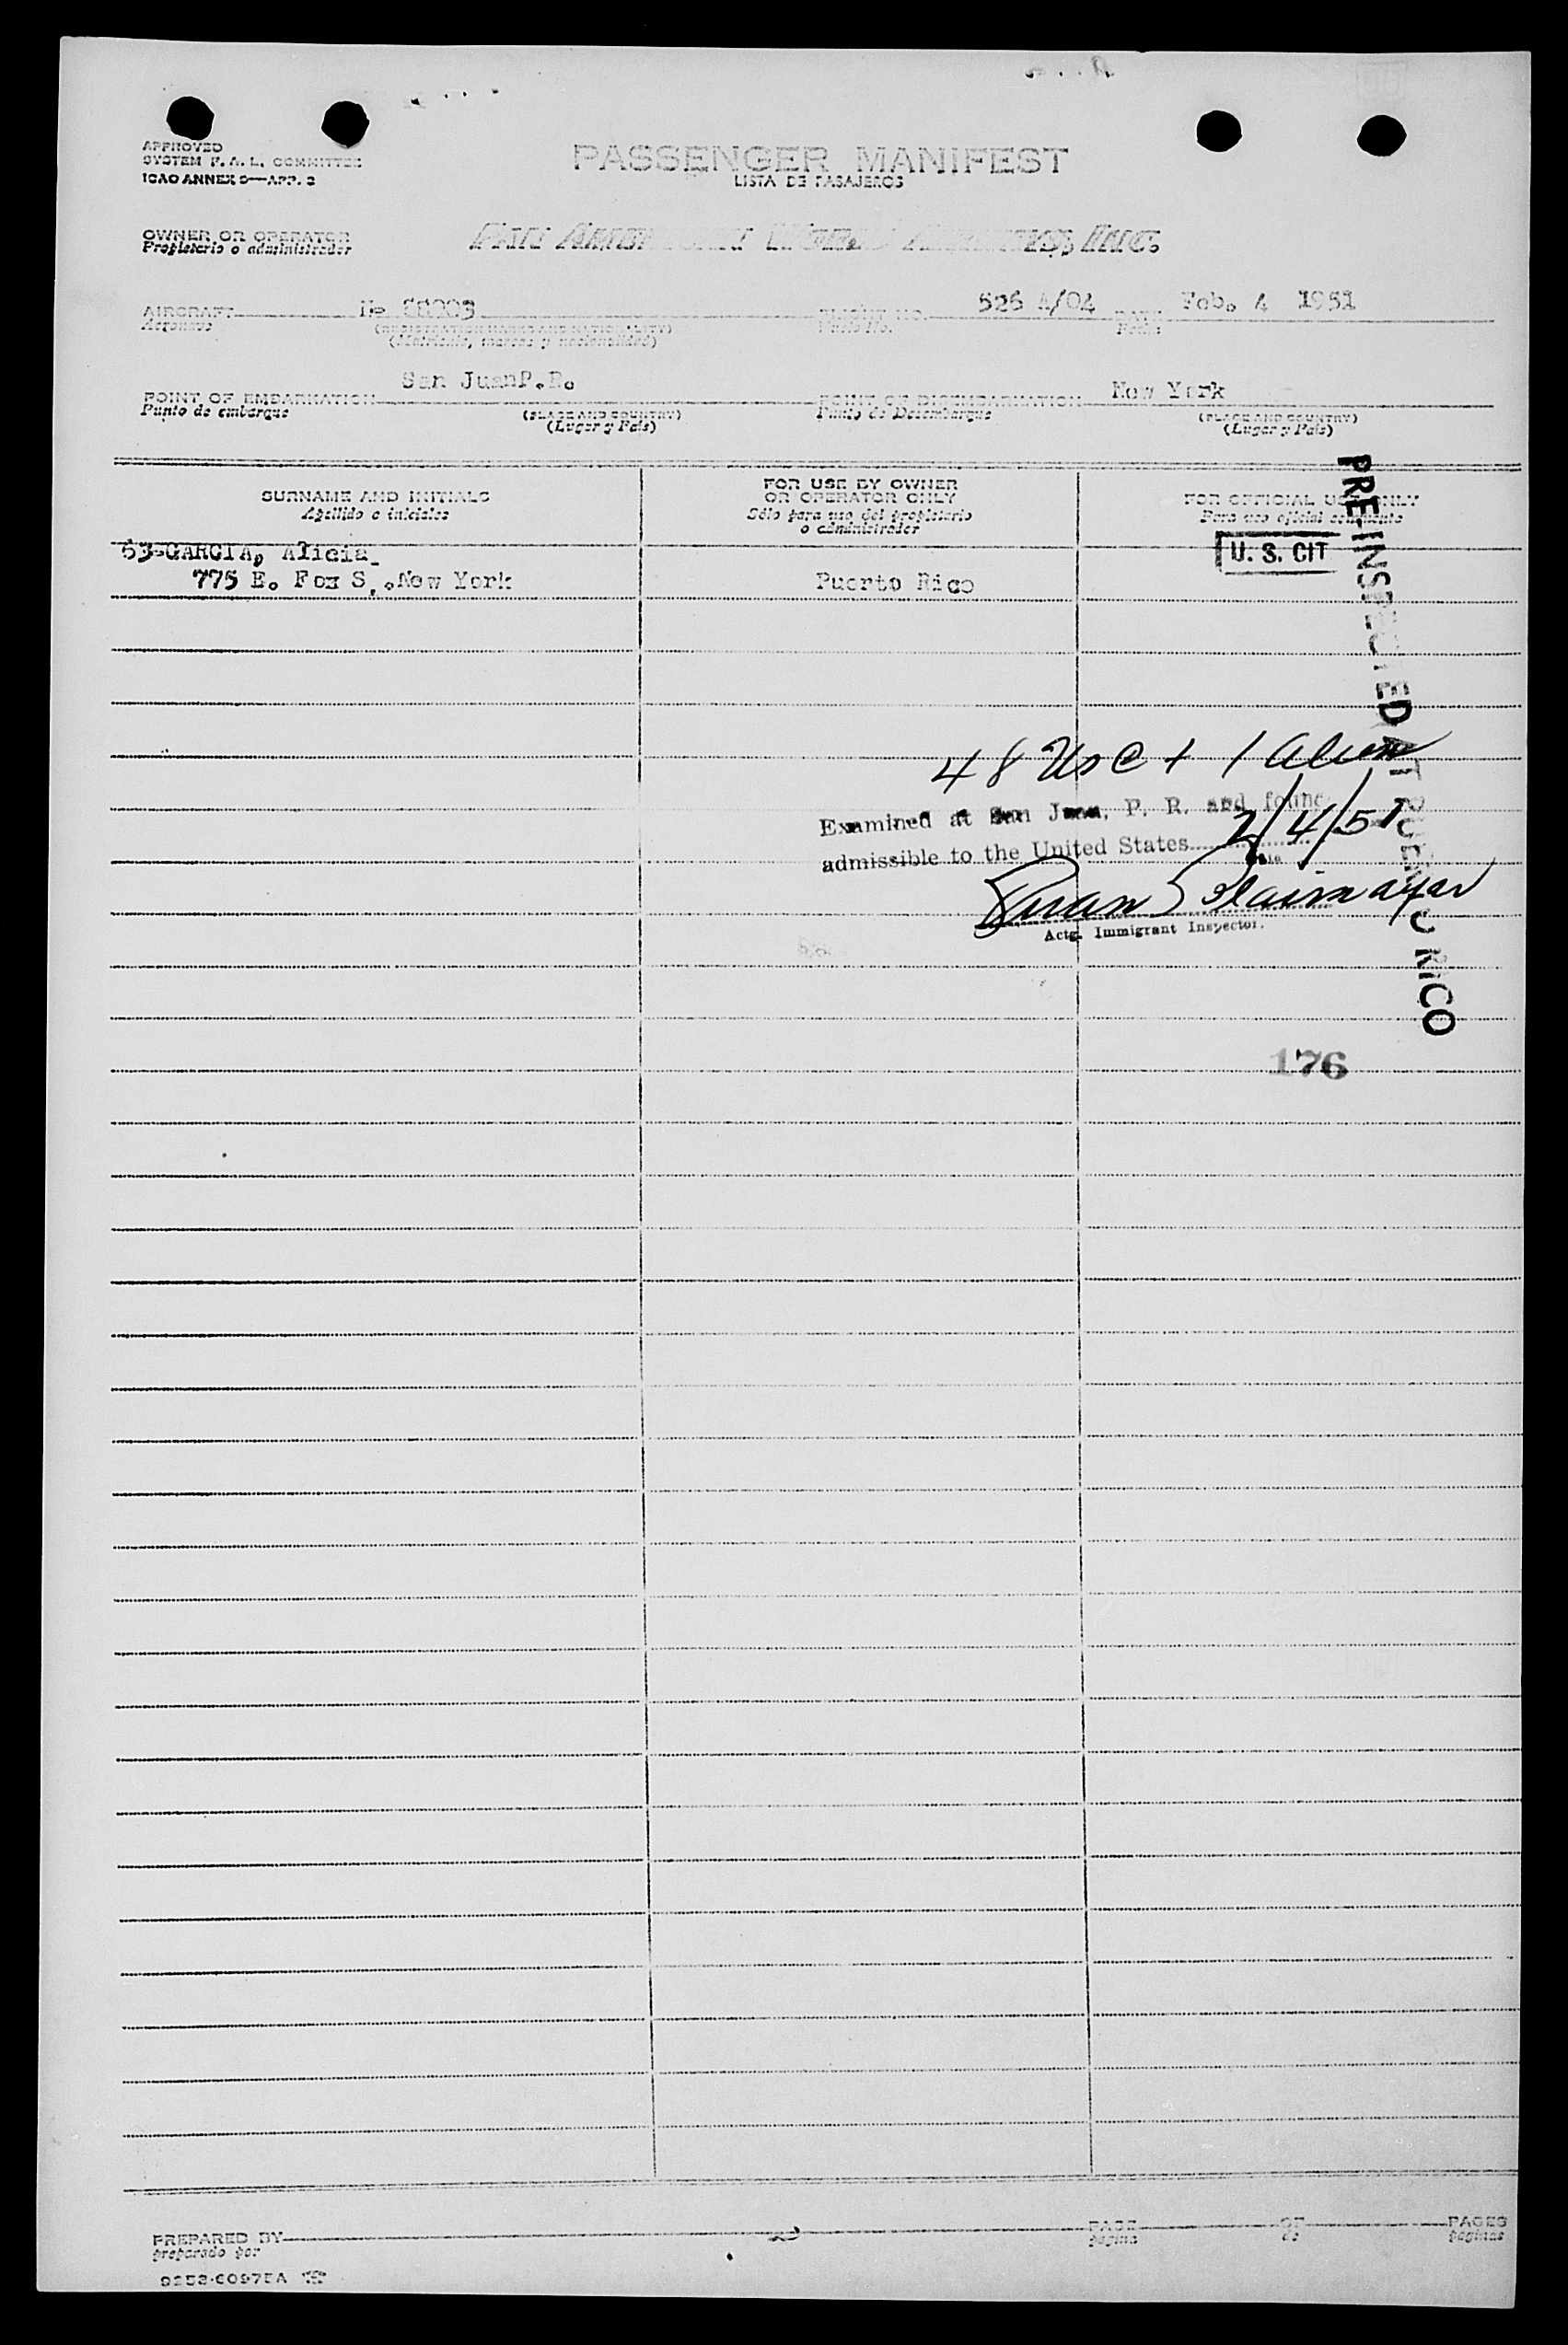 APPROVED
SYSTEM F. A. L. COMMITTEE
ICAO ANNEX 9—APP. 2
PASSENGER MANIFEST
LISTA DE PASAJEROS
OWNER OR OPERATOR
Propietario o administrador
PAN AMERICAN WORLD AIRWAYS, INC.
AIRCRAFT
Aeronave
(REGISTRATION MARKS AND NATIONALITY)
(Matricula, marcas y nacionalidad)
FLIGHT NO. 526 4/04
Vuelo No.
DATE Feb. 4 1951
Fecha
POINT OF EMBARKATION San JuanP.R.
Punto de embarque
(PLACE AND COUNTRY)
(Lugar y Pais)
POINT OF DISEMBARKATION New York
Punto de Desembarque
(PLACE AND COUNTRY)
(Lugar y Pais)
SURNAME AND INITIALS
Apellido e iniciales
FOR USE BY OWNER
OR OPERATOR ONLY
Sólo para uso del propietario
o administrador
FOR OFFICIAL USE ONLY
Para uso oficial solamente
63-GARCIA, Alicia
775 E. Fox S,.New York
Puerto Rico
U. S. CIT
PRE-INSPECTED AT PUERTO RICO
48 Usc + 1 Alien
Examined at San Juan, P. R. and found
admissible to the United States 2/4/51
Date
Juan
Actg. Immigrant Inspector.
176
PREPARED BY
preparado por
PAGE
página
OF
de
PAGES
páginas